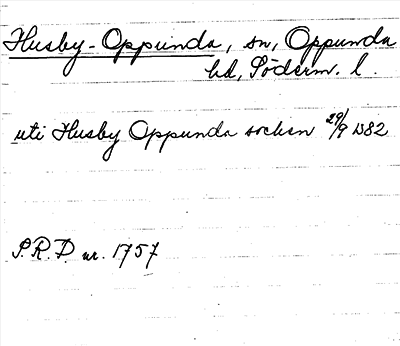 Husby-Oppunda, sn, Oppunda
hd, Söderm. l.
uti Husby Oppunda sochen 29/9 1582
S.R.D. nr. 1757